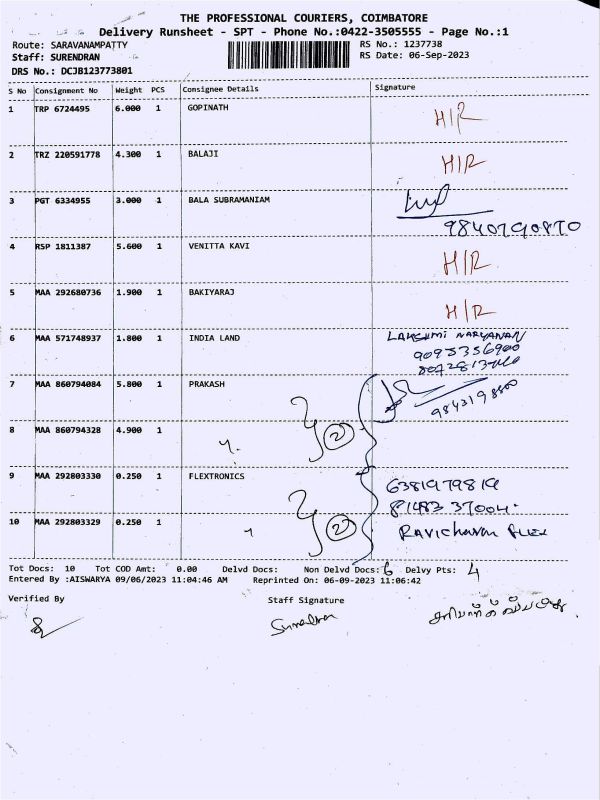 THE PROFESSIONAL COURIERS, COIMBATORE
Delivery Runsheet - SPT - Phone No.:0422-3505555 - Page No.:1
Route: SARAVANAMPATTY RS No.: 1237738
Staff: SURENDRAN RS Date: 06-Sep-2023
DRS No.: DCJB123773801
S No Consignment No Weight PCS Consignee Details Signature
1 TRP 6724495 6.000 1 GOPINATH H/R
2 TRZ 220591778 4.300 1 BALAJI H/R
3 PGT 6334955 3.000 1 BALA SUBRAMANIAM
9840790870
4 RSP 1811387 5.600 1 VENITTA KAVI H/R
5 MAA 292680736 1.900 1 BAKIYARAJ H/R
6 MAA 571748937 1.800 1 INDIA LAND LAKSHMI NARYANAN
9095356900
7 MAA 860794084 5.800 1 PRAKASH
8 MAA 860794328 4.900 1 2
9 MAA 292803330 0.250 1 FLEXTRONICS 6381979819
10 MAA 292803329 0.250 1 2 Ravicharan FLEX
Tot Docs: 10 Tot COD Amt: 0.00 Delvd Docs: Non Delvd Docs: 6 Delvy Pts: 4
Entered By :AISWARYA 09/06/2023 11:04:46 AM Reprinted On: 06-09-2023 11:06:42
Verified By Staff Signature
Surendran